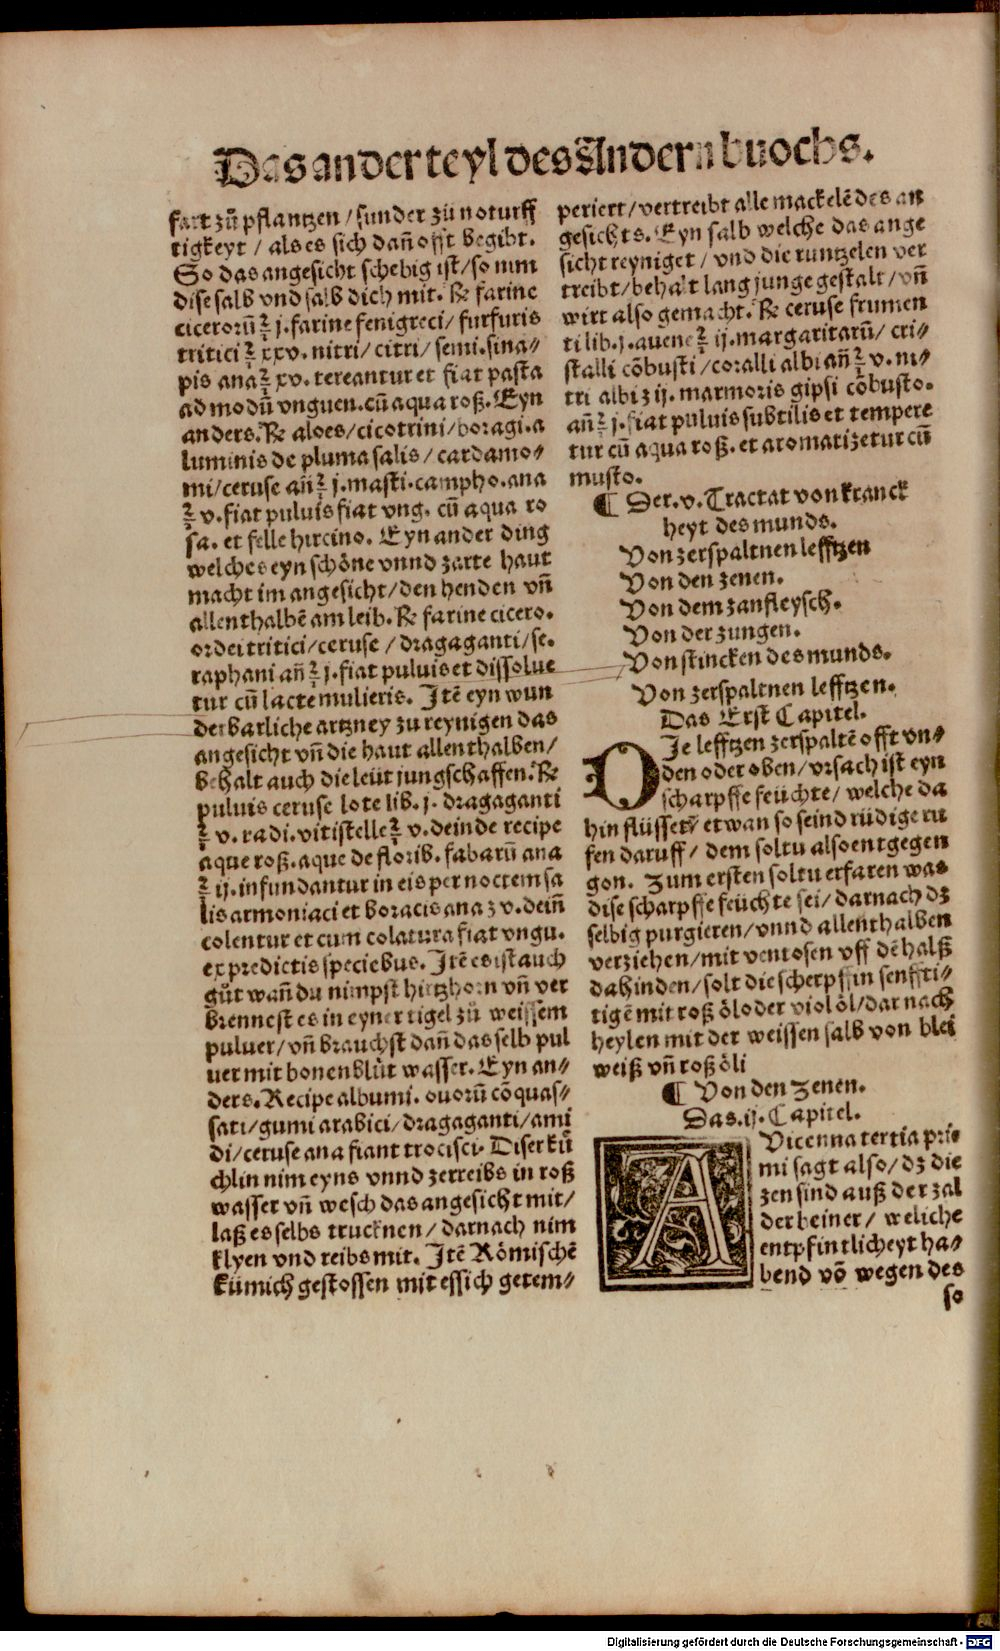 Das ander teyl des Andern buochs.
fart zů pflantzen / sunder zů noturff
tigkeyt / als es sich dañ offt begibt.
So das angesicht schebig ist / so nim
dise salb vnd salb dich mit. ℞ farine
cicerorũ ℥ j. farine fenigreci / furfuris
tritici ℥ xxv. nitri / citri / semi. sina⸗
pis ana ℥ xv. tereantur et fiat pasta
ad modũ vnguen. cũ aqua roß. Eyn
anders. ℞ aloes / cicotrini / boragi. a
luminis de pluma salis / cardamo⸗
mi / ceruse añ ℥ j. masti. campho. ana
℥ v. fiat puluis fiat vng. cũ aqua ro
sa. et felle hircino. Eyn ander ding
welches eyn schöne vnnd zarte haut
macht im angesicht / den henden vñ
allenthalbẽ am leib. ℞ farine cicero.
ordei tritici / ceruse / dragaganti / se.
raphani añ ℥ j. fiat puluis et dissolue
tur cũ lacte mulieris. Jtẽ eyn wun
derbarliche artzney zu reynigen das
angesicht vñ die haut allenthalben /
behalt auch die leüt jungschaffen. ℞
puluis ceruse lote lib. j. dragaganti
℥ v. radi. vitistelle ℥ v. deinde recipe
aque roß. aque de florib. fabarũ ana
℥ ij. infundantur in eis per noctem sa
lis armoniaci et boracis ana ʒ v. deiñ
colentur et cum colatura fiat vngu.
ex predictis speciebus. Jtẽ es ist auch
gůt wañ du nimpst hirtzhorn vñ ver
brennest es in eyner tigel zů weissem
puluer / vñ brauchst dañ das selb pul
uer mit bonenblüt wasser. Eyn an⸗
ders. Recipe albumi. ouorũ cõquas⸗
sati / gumi arabici / dragaganti / ami
di / ceruse ana fiant trocisci. Diser kü
chlin nim eyns vnnd zerreibs in roß
wasser vñ wesch das angesicht mit /
laß es selbs trucknen / darnach nim
klyen vnd reibs mit. Jtẽ Römischẽ
kümich gestossen mit essich getem⸗
periert / vertreibt alle mackelẽ des an
gesichts. Eyn salb welche das ange
sicht reyniget / vnd die runtzelen ver
treibt / behalt lang junge gestalt / vñ
wirt also gemacht. ℞ ceruse frumen
ti lib. j. auene ℥ ij. margaritarũ / cri⸗
stalli cõbusti / coralli albi añ ℥ v. ni⸗
tri albi ʒ ij. marmoris gipsi cõbusto.
añ ℥ j. fiat puluis subtilis et tempere
tur cũ aqua roß. et aromatizetur cũ
musto.
¶ Der. v. Tractat von kranck
heyt des munds.
Von zerspaltnen lefftzen
Von den zenen.
Von dem zanfleysch.
Von der zungen.
Von stincken des munds.
Von zerspaltnen lefftzen.
Das Erst Capitel.
DJe lefftzen zerspaltẽ offt vn⸗
den oder oben / vrsach ist eyn
scharpffe feüchte / welche da
hin flüsset / etwan so seind rüdige ru
fen daruff / dem soltu also entgegen
gon. Zum ersten soltu erfaren was
dise scharpffe feüchte sei / darnach dz
selbig purgieren / vnnd allenthalben
verziehen / mit ventosen vff dẽ halß
dahinden / solt die scherpffin senffti⸗
tigẽ mit roß öl oder viol öl / darnach
heylen mit der weissen salb von blei
weiß vñ roß öli
¶ Von den Zenen.
Das. ij. Capitel.
AVicenna tertia pri⸗
mi sagt also / dz die
zen sind auß der zal
der beiner / weliche
entpfintlicheyt ha⸗
bend võ wegen des
so
Digitalisierung gefördert durch die Deutsche Forschungsgemeinschaft - DFG